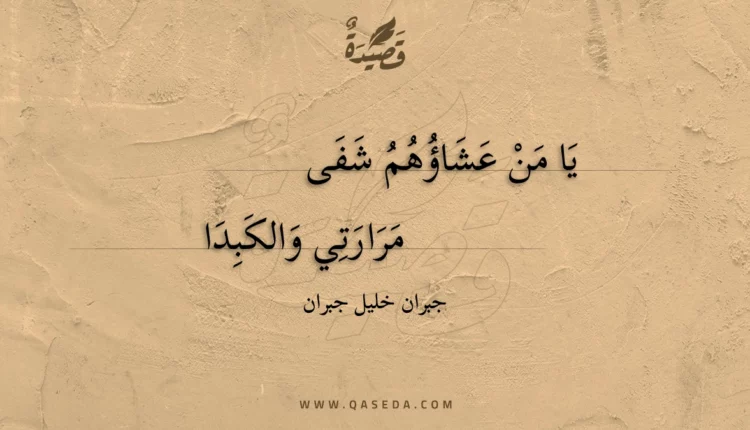 قَصِيْدَةٌ
يَا مَنْ عَشَاؤُهُمُ شَفَى
مَرَارَتِي وَالكَبِدَا
جبران خليل جبران
WWW.QASEDA.COM